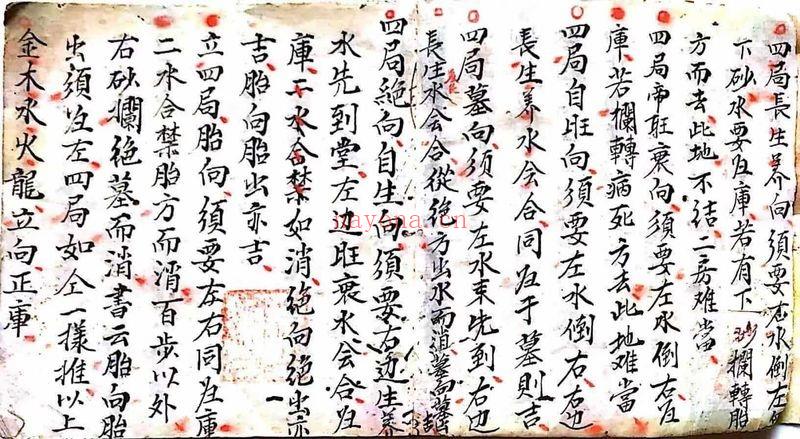 四局長生养向須要右水倒左
下砂水要归庫若有下砂攔轉胎
方而去此地不结二房难當
四局帝旺衰向須要左水倒右
庫若攔轉病死方去此地难當
四局自旺向須要左水倒右右边
長生养水会合同归于墓則吉
四局墓向須要左水来先到右边
長生水会合從後方出水而道墓向
四局絕向自生向須要右边生养
水先到堂左边旺衰水会合归
庫二水合禁如消絕向絕出亦
吉胎向胎出亦吉
立四局胎向須要左右同归庫
二水合禁胎方而消百步以外
右砂攔絕墓而消書云胎向胎
出須归左四局如仝一樣推以上
金木水火龍立向正庫
nayona.cn